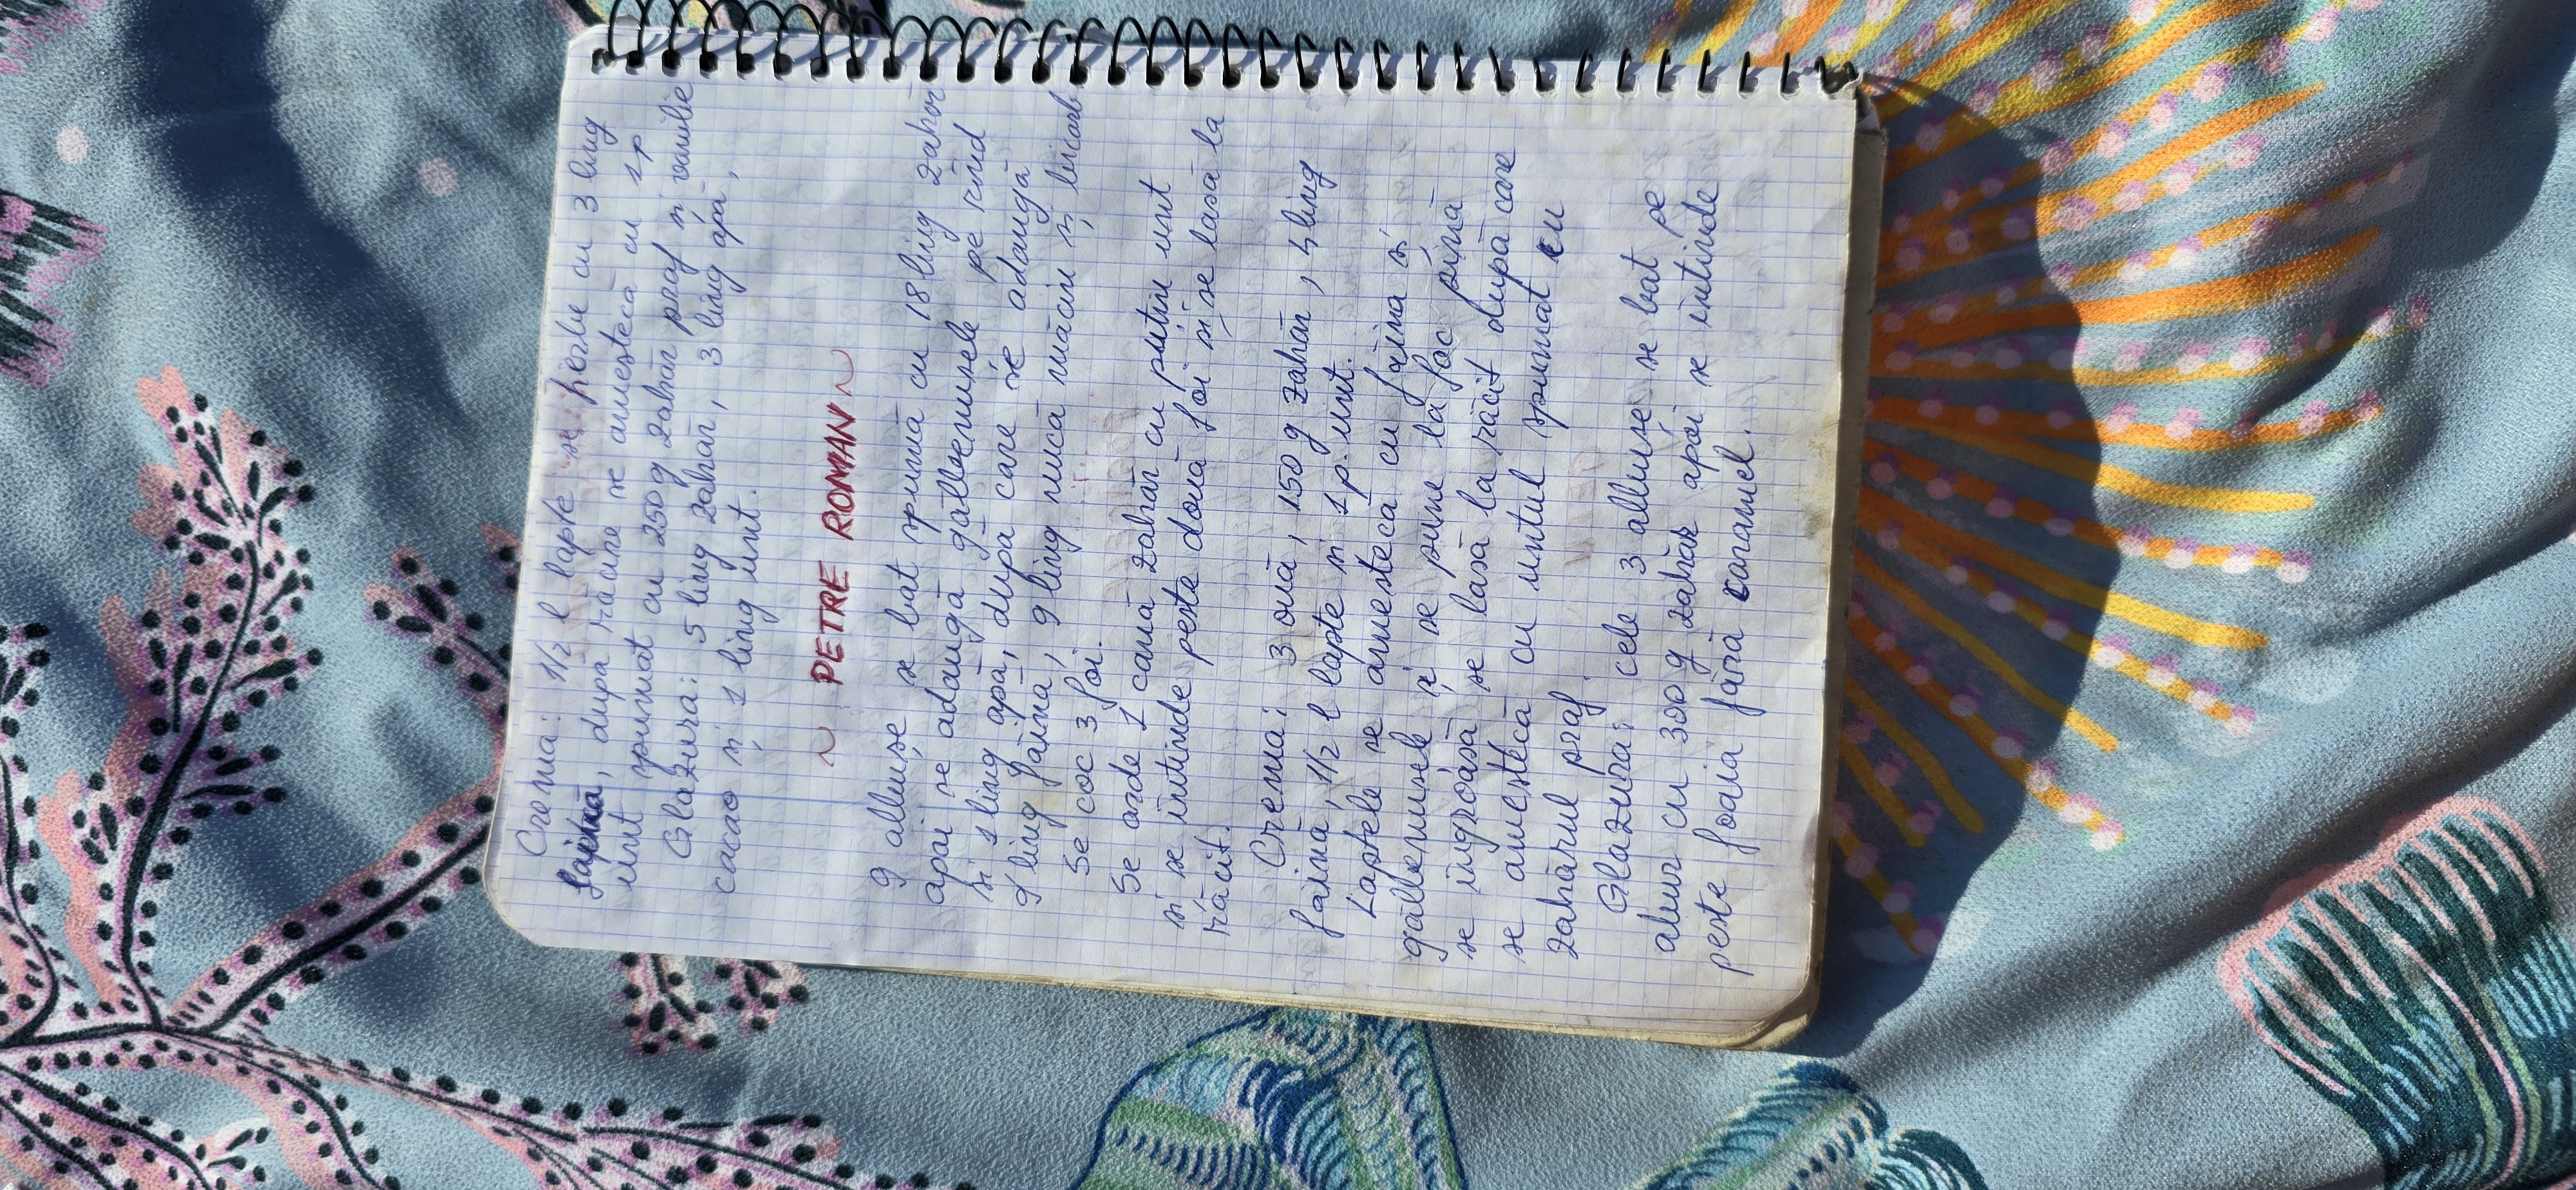 Crema: 1/2 l lapte se fierbe cu 3 ling
făină, după răcire se amestecă cu 1 p
unt spumat cu 250 g zahăr praf și vanilie
Glazura: 5 ling zahăr, 3 ling apă,
cacao și 1 ling unt.
~ PETRE ROMAN ~
9 albușe se bat spumă cu 18 ling zahăr
apoi se adaugă gălbenușele pe rînd
și 1 ling apă, după care se adaugă
9 ling făină, 9 ling nucă măcin și bicarb
Se coc 3 foi.
Se arde 1 cană zahăr cu puțin unt
și se întinde peste două foi și se lasă la
răcit.
Crema: 3 ouă, 150 g zahăr, 4 ling
făină, 1/2 l lapte și 1 p. unt.
Laptele se amestecă cu făina și
gălbenușele și se pune la foc pînă
se îngroașă se lasă la răcit după care
se amestecă cu untul spumat cu
zahărul praf.
Glazura: cele 3 albușe se bat pe
abur cu 300 g zahăr apoi se întinde
peste foaia fără caramel.